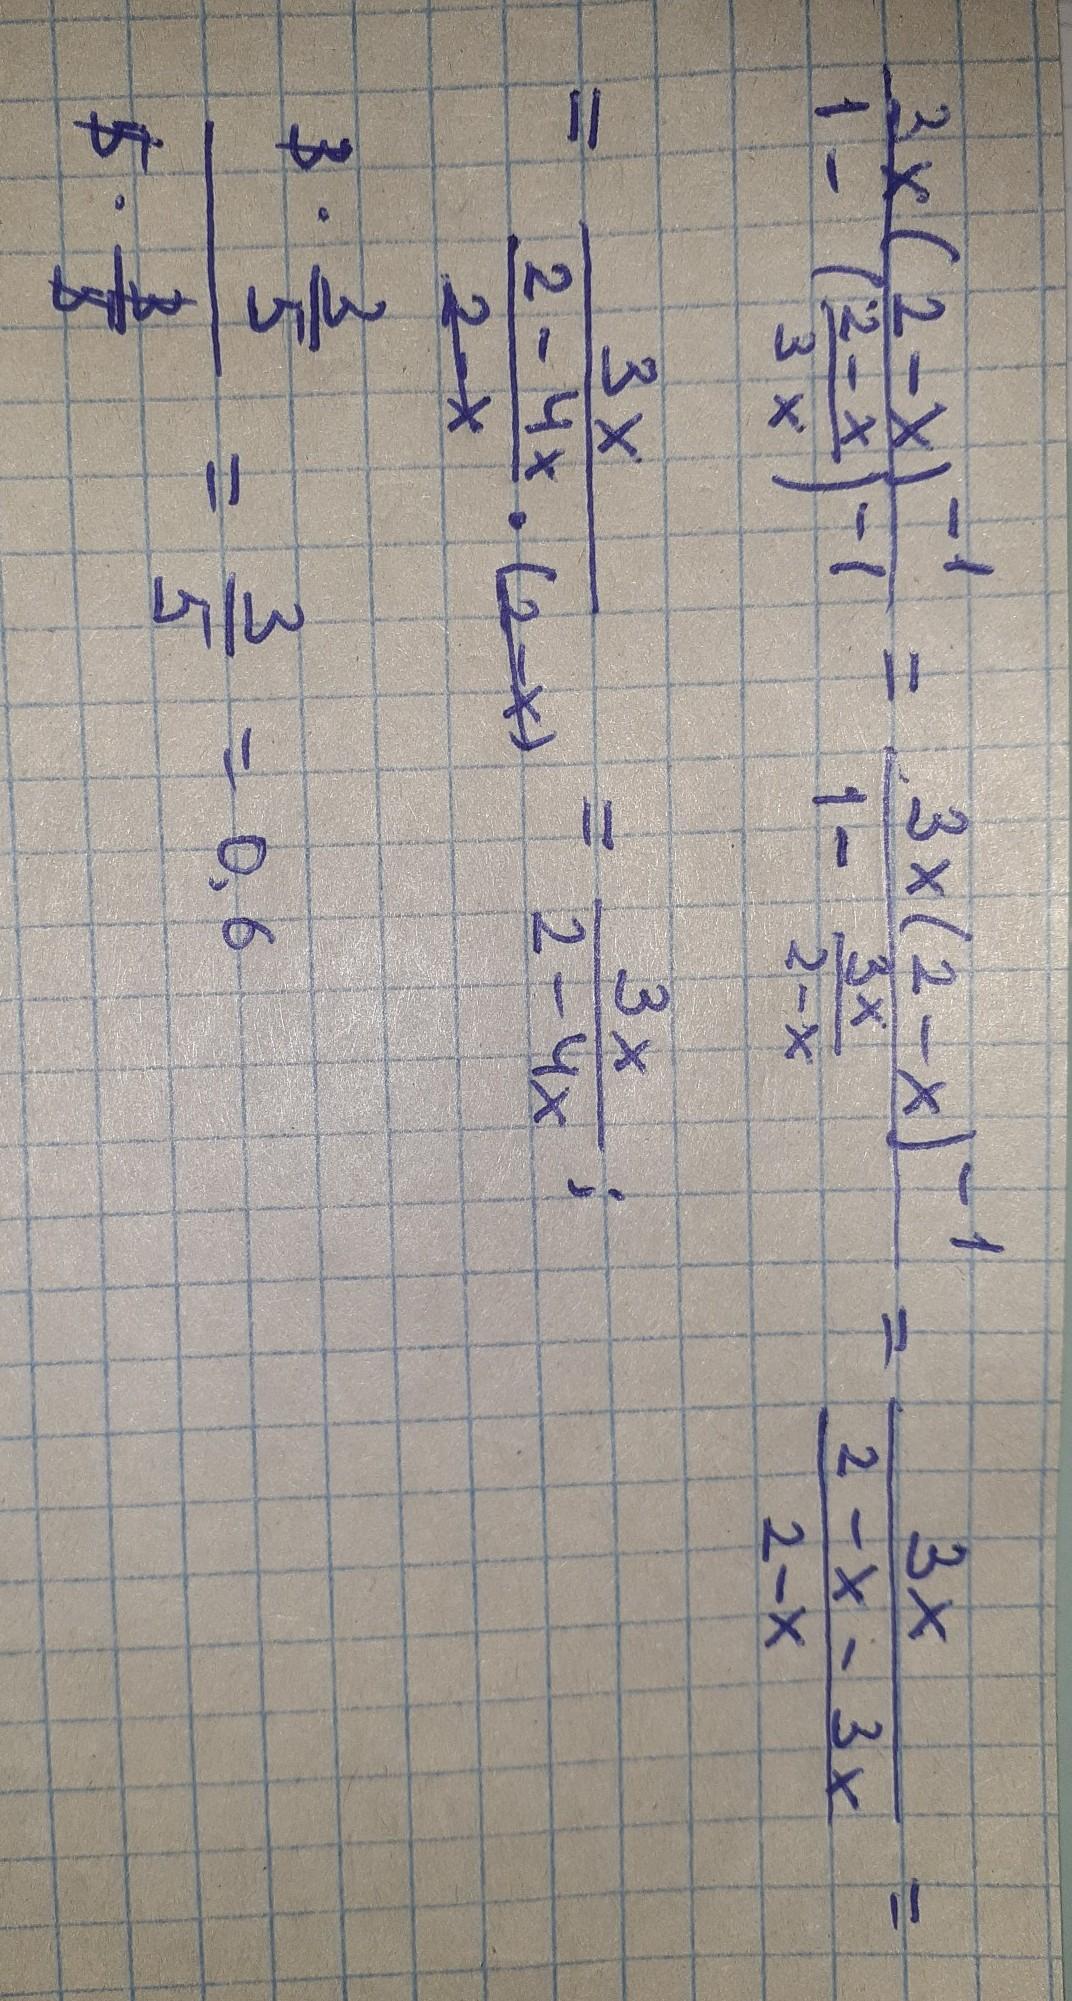 \frac{3x(2-x)^{-1}}{1-(\frac{2-x}{3x})^{-1}} = \frac{3x(2-x)^{-1}}{1-\frac{3x}{2-x}} = \frac{3x}{\frac{2-x-3x}{2-x}} =
= \frac{3x}{\frac{2-4x}{2-x} \cdot (2-x)} = \frac{3x}{2-4x};
\frac{3 \cdot \frac{3}{5}}{5 \cdot \frac{3}{5}} = \frac{3}{5} = 0,6